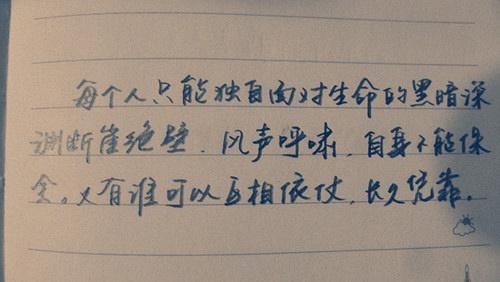 每个人只能独自面对生命的黑暗深
渊断崖绝壁。风声呼啸，自身不能保
全。又有谁可以互相依仗，长久凭靠。